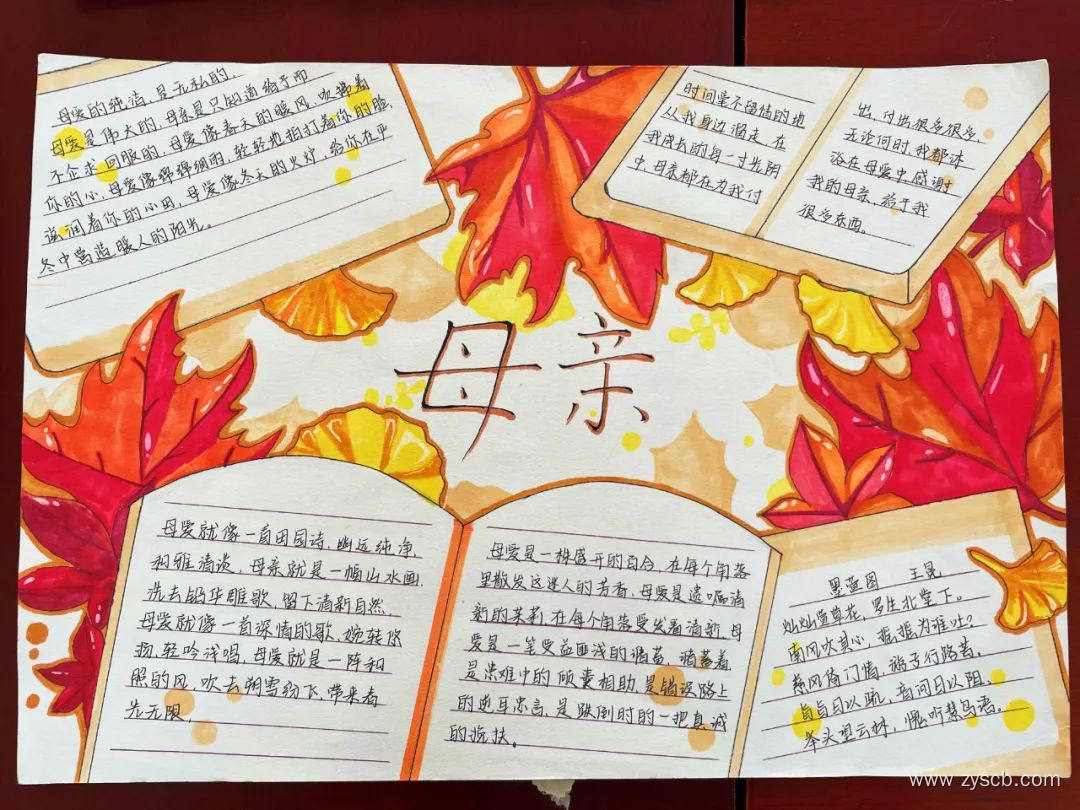 母爱的纯洁,是无私的,
母爱是伟大的,母亲是只知道给予而
不企求回服的,母爱像春天的暖风,吹拂着
你的心,母爱像绵绵细雨,轻轻地拍打着你的脸,
滋润着你的小田,母爱像冬天的火炉,给你在严
冬中营造暖人的阳光。
时间毫不留情的地
从我身边溜走,在
我成长的每一寸光阴
中,母亲都在为我付
出,付出很多很多,
无论何时,我都沐
浴在母爱中感谢
我的母亲,给予我
很多东西。
母亲
母爱就像一首田园诗,幽远纯净,
和雅清淡,母亲就是一幅山水画,
洗去铅华雕歌,留下清新自然,
母爱就像一首深情的歌,婉转悠
扬,轻吟浅唱,母爱就是一阵和
煦的风,吹去朔雪纷飞,带来春
光无限,
母爱是一株盛开的百合,在每个角落
里散发这迷人的芳香,母爱是
新的茉莉,在每个角落要发着清新,母
爱是一
是患难中的倾囊相助,是错误路上
的逆耳忠言,是跌倒时的一把真诚
的搀扶。
墨萱图 王冕
灿灿萱草花,罗生北堂下。
南风吹其心,摇摇为谁吐?
慈母倚门情,游子行路苦。
甘旨日以疏,音问日以阻。
举头望云林,愧听慧鸟语。
www.zyscb.com